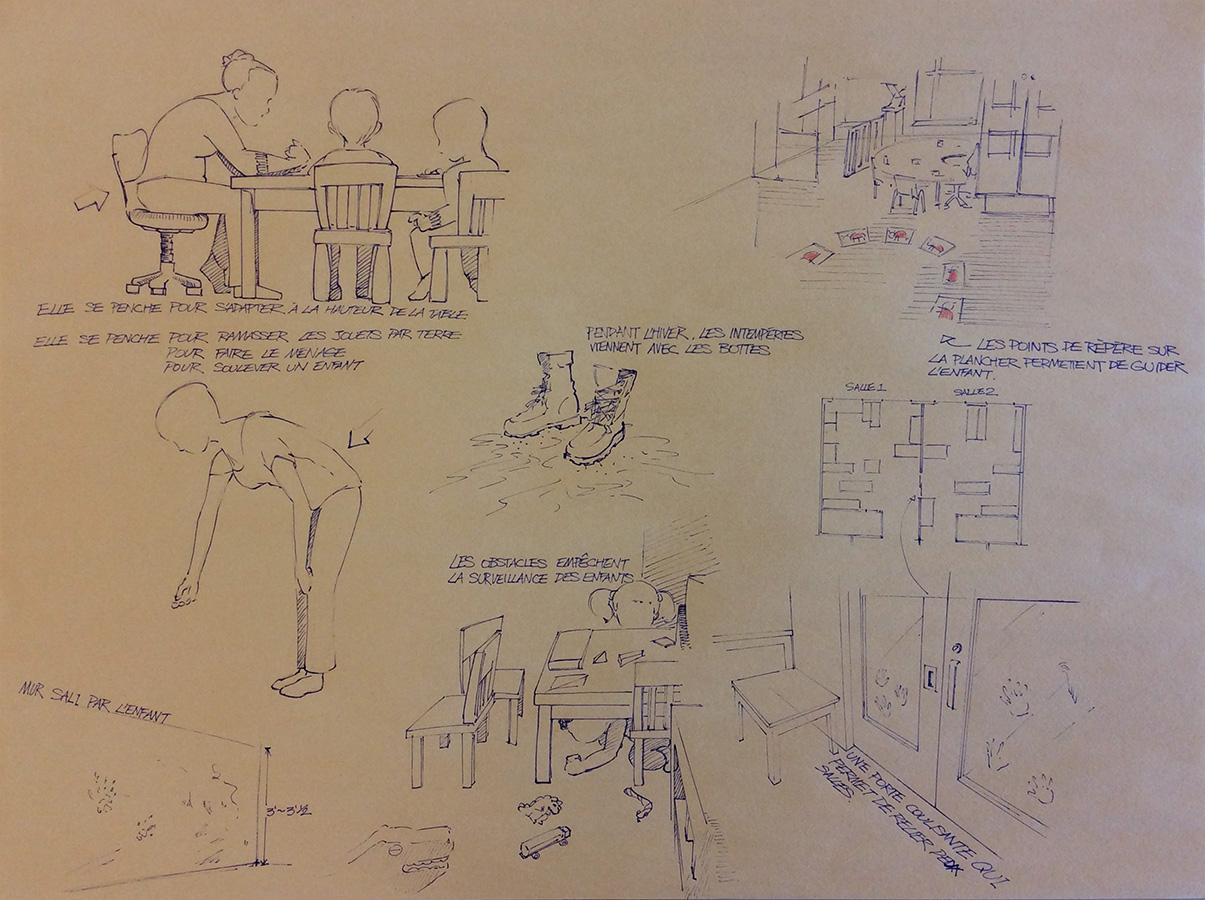 ELLE SE PENCHE POUR S'ADAPTER À LA HAUTEUR DE LA TABLE
ELLE SE PENCHE POUR RAMASSER LES JOUETS PAR TERRE
POUR FAIRE LE MÉNAGE
POUR SOULEVER UN ENFANT
PENDANT L'HIVER, LES INTEMPÉRIES
VIENNENT AVEC LES BOTTES
LES POINTS DE RÈPÈRE SUR
LA PLANCHER PERMETTENT DE GUIDER
L'ENFANT.
SALLE 1
SALLE 2
LES OBSTACLES EMPÊCHENT
LA SURVEILLANCE DES ENFANTS
MUR SALI PAR L'ENFANT
3'~3'½
UNE PORTE COULISANTE QUI
PERMET DE RELIER DEUX
SALLES.